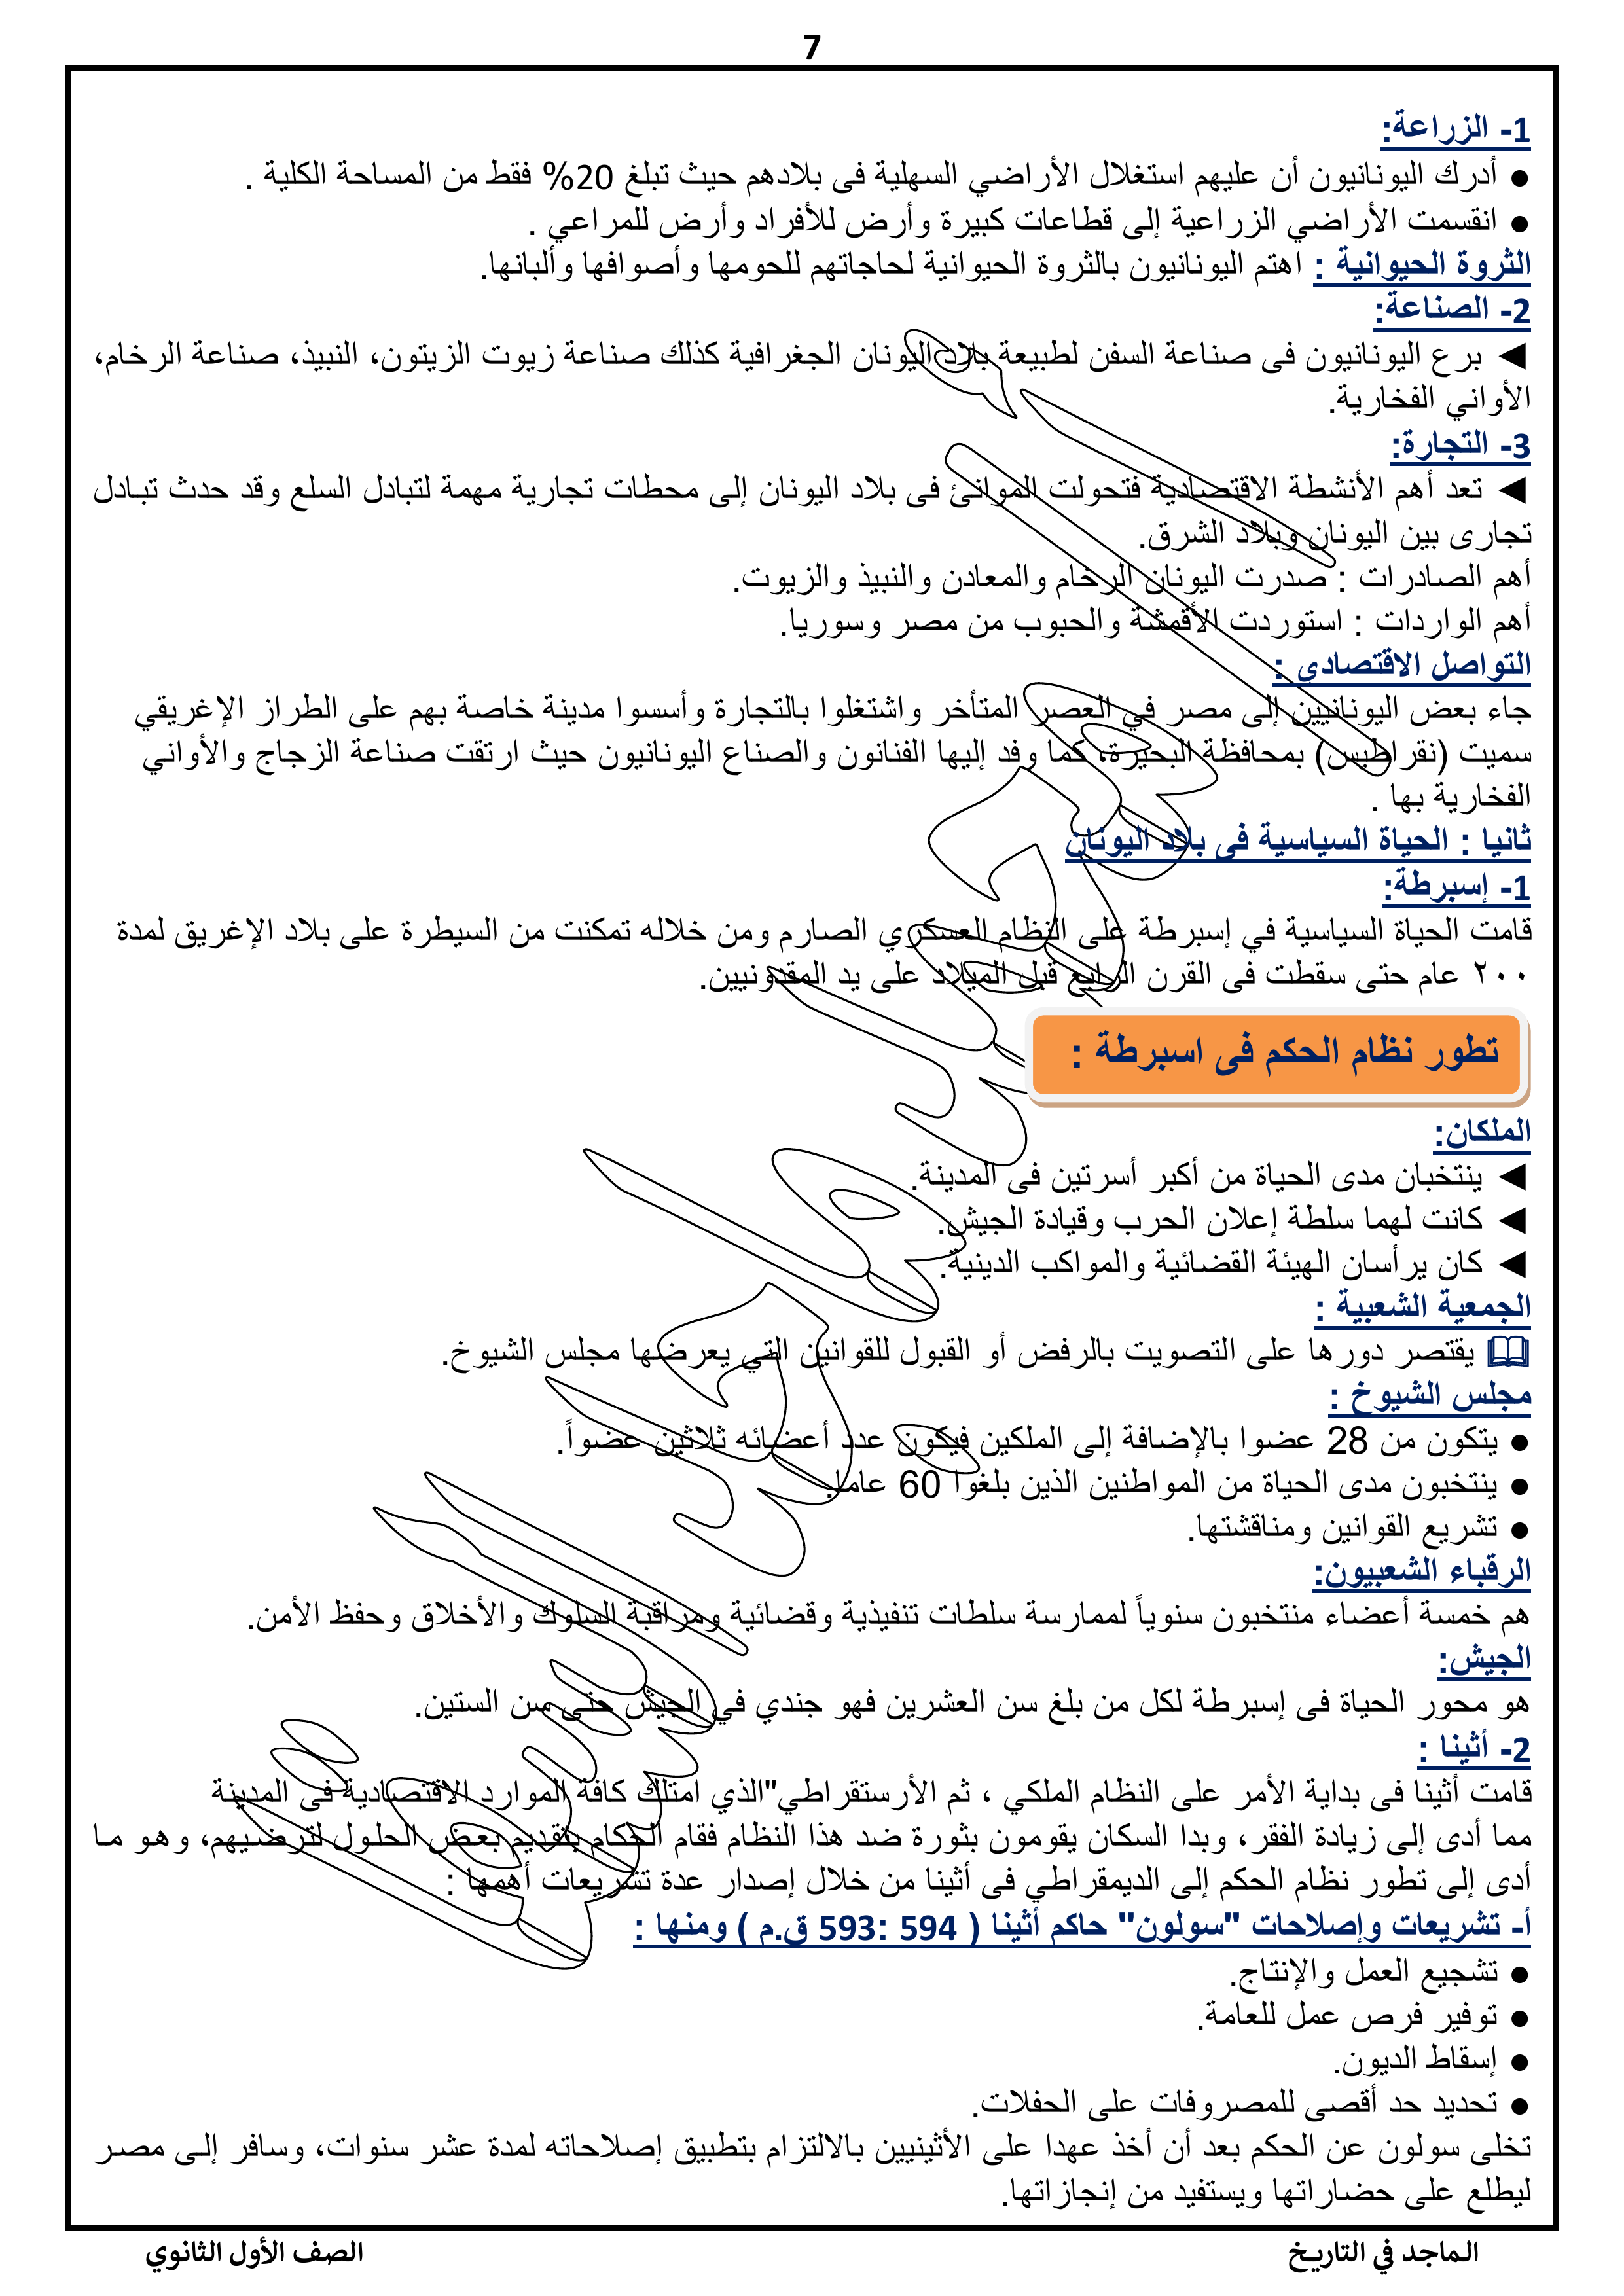 7
1- الزراعة:
● أدرك اليونانيون أن عليهم استغلال الأراضي السهلية فى بلادهم حيث تبلغ 20% فقط من المساحة الكلية .
● انقسمت الأراضي الزراعية إلى قطاعات كبيرة وأرض للأفراد وأرض للمراعي .
الثروة الحيوانية : اهتم اليونانيون بالثروة الحيوانية لحاجاتهم للحومها وأصوافها وألبانها.
2- الصناعة:
◄ برع اليونانيون فى صناعة السفن لطبيعة بلاد اليونان الجغرافية كذلك صناعة زيوت الزيتون، النبيذ، صناعة الرخام،
الأواني الفخارية.
3- التجارة:
◄ تعد أهم الأنشطة الاقتصادية فتحولت الموانئ فى بلاد اليونان إلى محطات تجارية مهمة لتبادل السلع وقد حدث تبادل
تجارى بين اليونان وبلاد الشرق.
أهم الصادرات : صدرت اليونان الرخام والمعادن والنبيذ والزيوت.
أهم الواردات : استوردت الأقمشة والحبوب من مصر وسوريا.
التواصل الاقتصادي :
جاء بعض اليونانيين إلى مصر في العصر المتأخر واشتغلوا بالتجارة وأسسوا مدينة خاصة بهم على الطراز الإغريقي
سميت (نقراطيس) بمحافظة البحيرة، كما وفد إليها الفنانون والصناع اليونانيون حيث ارتقت صناعة الزجاج والأواني
الفخارية بها .
ثانيا : الحياة السياسية فى بلاد اليونان
1- إسبرطة:
قامت الحياة السياسية في إسبرطة على النظام العسكري الصارم ومن خلاله تمكنت من السيطرة على بلاد الإغريق لمدة
٢٠٠ عام حتى سقطت فى القرن الرابع قبل الميلاد على يد المقدونيين.
تطور نظام الحكم فى اسبرطة :
الملكان:
◄ ينتخبان مدى الحياة من أكبر أسرتين فى المدينة.
◄ كانت لهما سلطة إعلان الحرب وقيادة الجيش.
◄ كان يرأسان الهيئة القضائية والمواكب الدينية.
الجمعية الشعبية :
يقتصر دورها على التصويت بالرفض أو القبول للقوانين التي يعرضها مجلس الشيوخ.
مجلس الشيوخ :
● يتكون من 28 عضوا بالإضافة إلى الملكين فيكون عدد أعضائه ثلاثين عضواً.
● ينتخبون مدى الحياة من المواطنين الذين بلغوا 60 عاما.
● تشريع القوانين ومناقشتها.
الرقباء الشعبيون:
هم خمسة أعضاء منتخبون سنوياً لممارسة سلطات تنفيذية وقضائية ومراقبة السلوك والأخلاق وحفظ الأمن.
الجيش:
هو محور الحياة فى إسبرطة لكل من بلغ سن العشرين فهو جندي في الجيش حتى سن الستين.
2- أثينا :
قامت أثينا فى بداية الأمر على النظام الملكي ، ثم الأرستقراطي"الذي امتلك كافة الموارد الاقتصادية فى المدينة
مما أدى إلى زيادة الفقر، وبدا السكان يقومون بثورة ضد هذا النظام فقام الحكام بتقديم بعض الحلول لترضيهم، وهو ما
أدى إلى تطور نظام الحكم إلى الديمقراطي فى أثينا من خلال إصدار عدة تشريعات أهمها :
أ- تشريعات وإصلاحات "سولون" حاكم أثينا ( 594 :593 ق.م ) ومنها :
● تشجيع العمل والإنتاج.
● توفير فرص عمل للعامة.
● إسقاط الديون.
● تحديد حد أقصى للمصروفات على الحفلات.
تخلى سولون عن الحكم بعد أن أخذ عهدا على الأثينيين بالالتزام بتطبيق إصلاحاته لمدة عشر سنوات، وسافر إلى مصر
ليطلع على حضاراتها ويستفيد من إنجازاتها.
الماجد في التاريخ
الصف الأول الثانوي